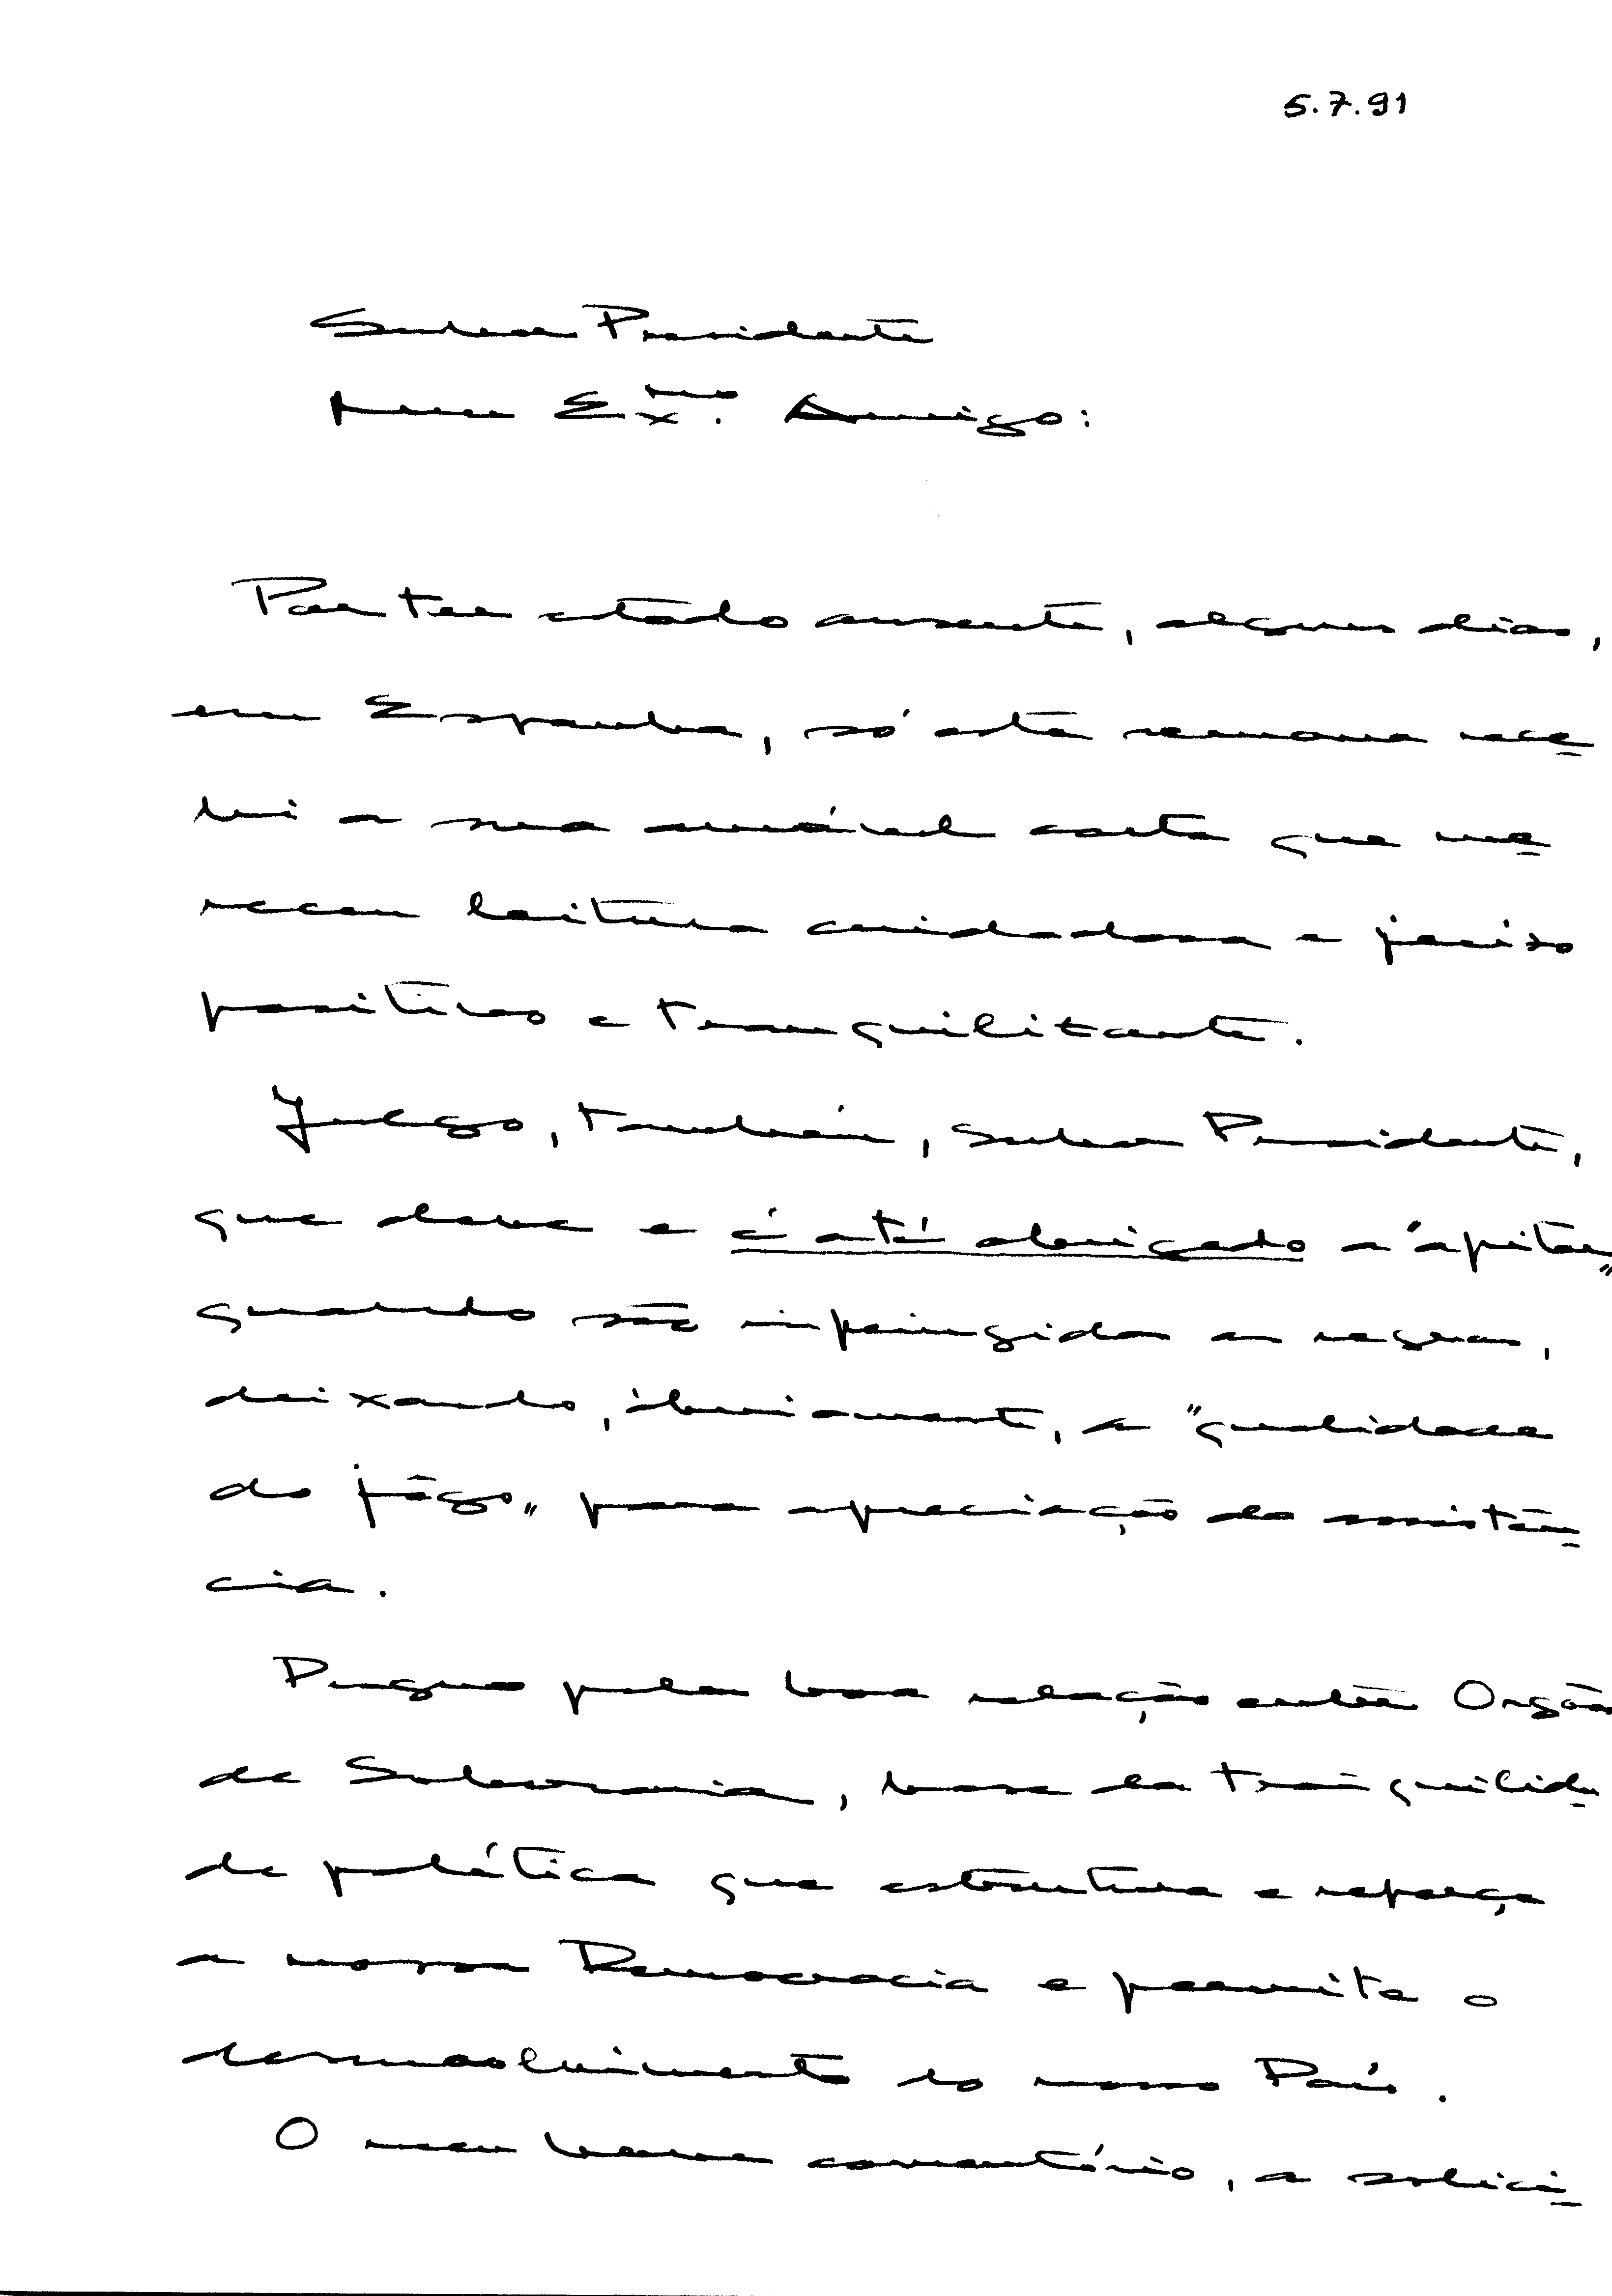 5.7.91
Senhor Presidente
Meu Exmo. Amigo:
Por ter estado ausente, alguns dias,
em Espanha, só esta semana rece
bi a sua amável carta que me
receu leitura cuidadosa e juizo
positivo e tranquilizante.
Julgo, também, Senhor Presidente,
que deve e é até obrigado a "apitar"
quando são infringidas as regras,
deixando, óbviamente, a "qualidade
do jôgo" para apreciação da assistên
cia.
Pugno pela boa relação entre Orgãos
de Soberania, base da tranquilida
de política que estrutura e reforça
a nossa Democracia e permite o
desenvolvimento do nosso País.
O meu breve comentário, a solici